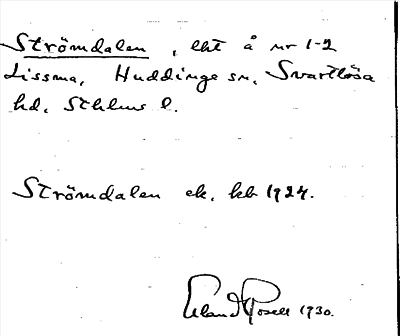 Strömdalen, lht å nr 1-2
Lissma, Huddinge sn, Svartlösa
hd, Sthlms l.
Strömdalen ek. kb 1924.
Erland Rosell 1930.